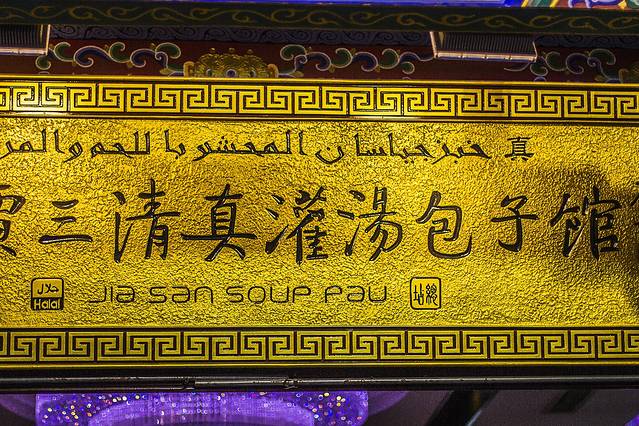 真 خبز جياسان المحشو باللحم
三清真灌湯包子馆
حلال
Halal
Jia San Soup Pau
總站